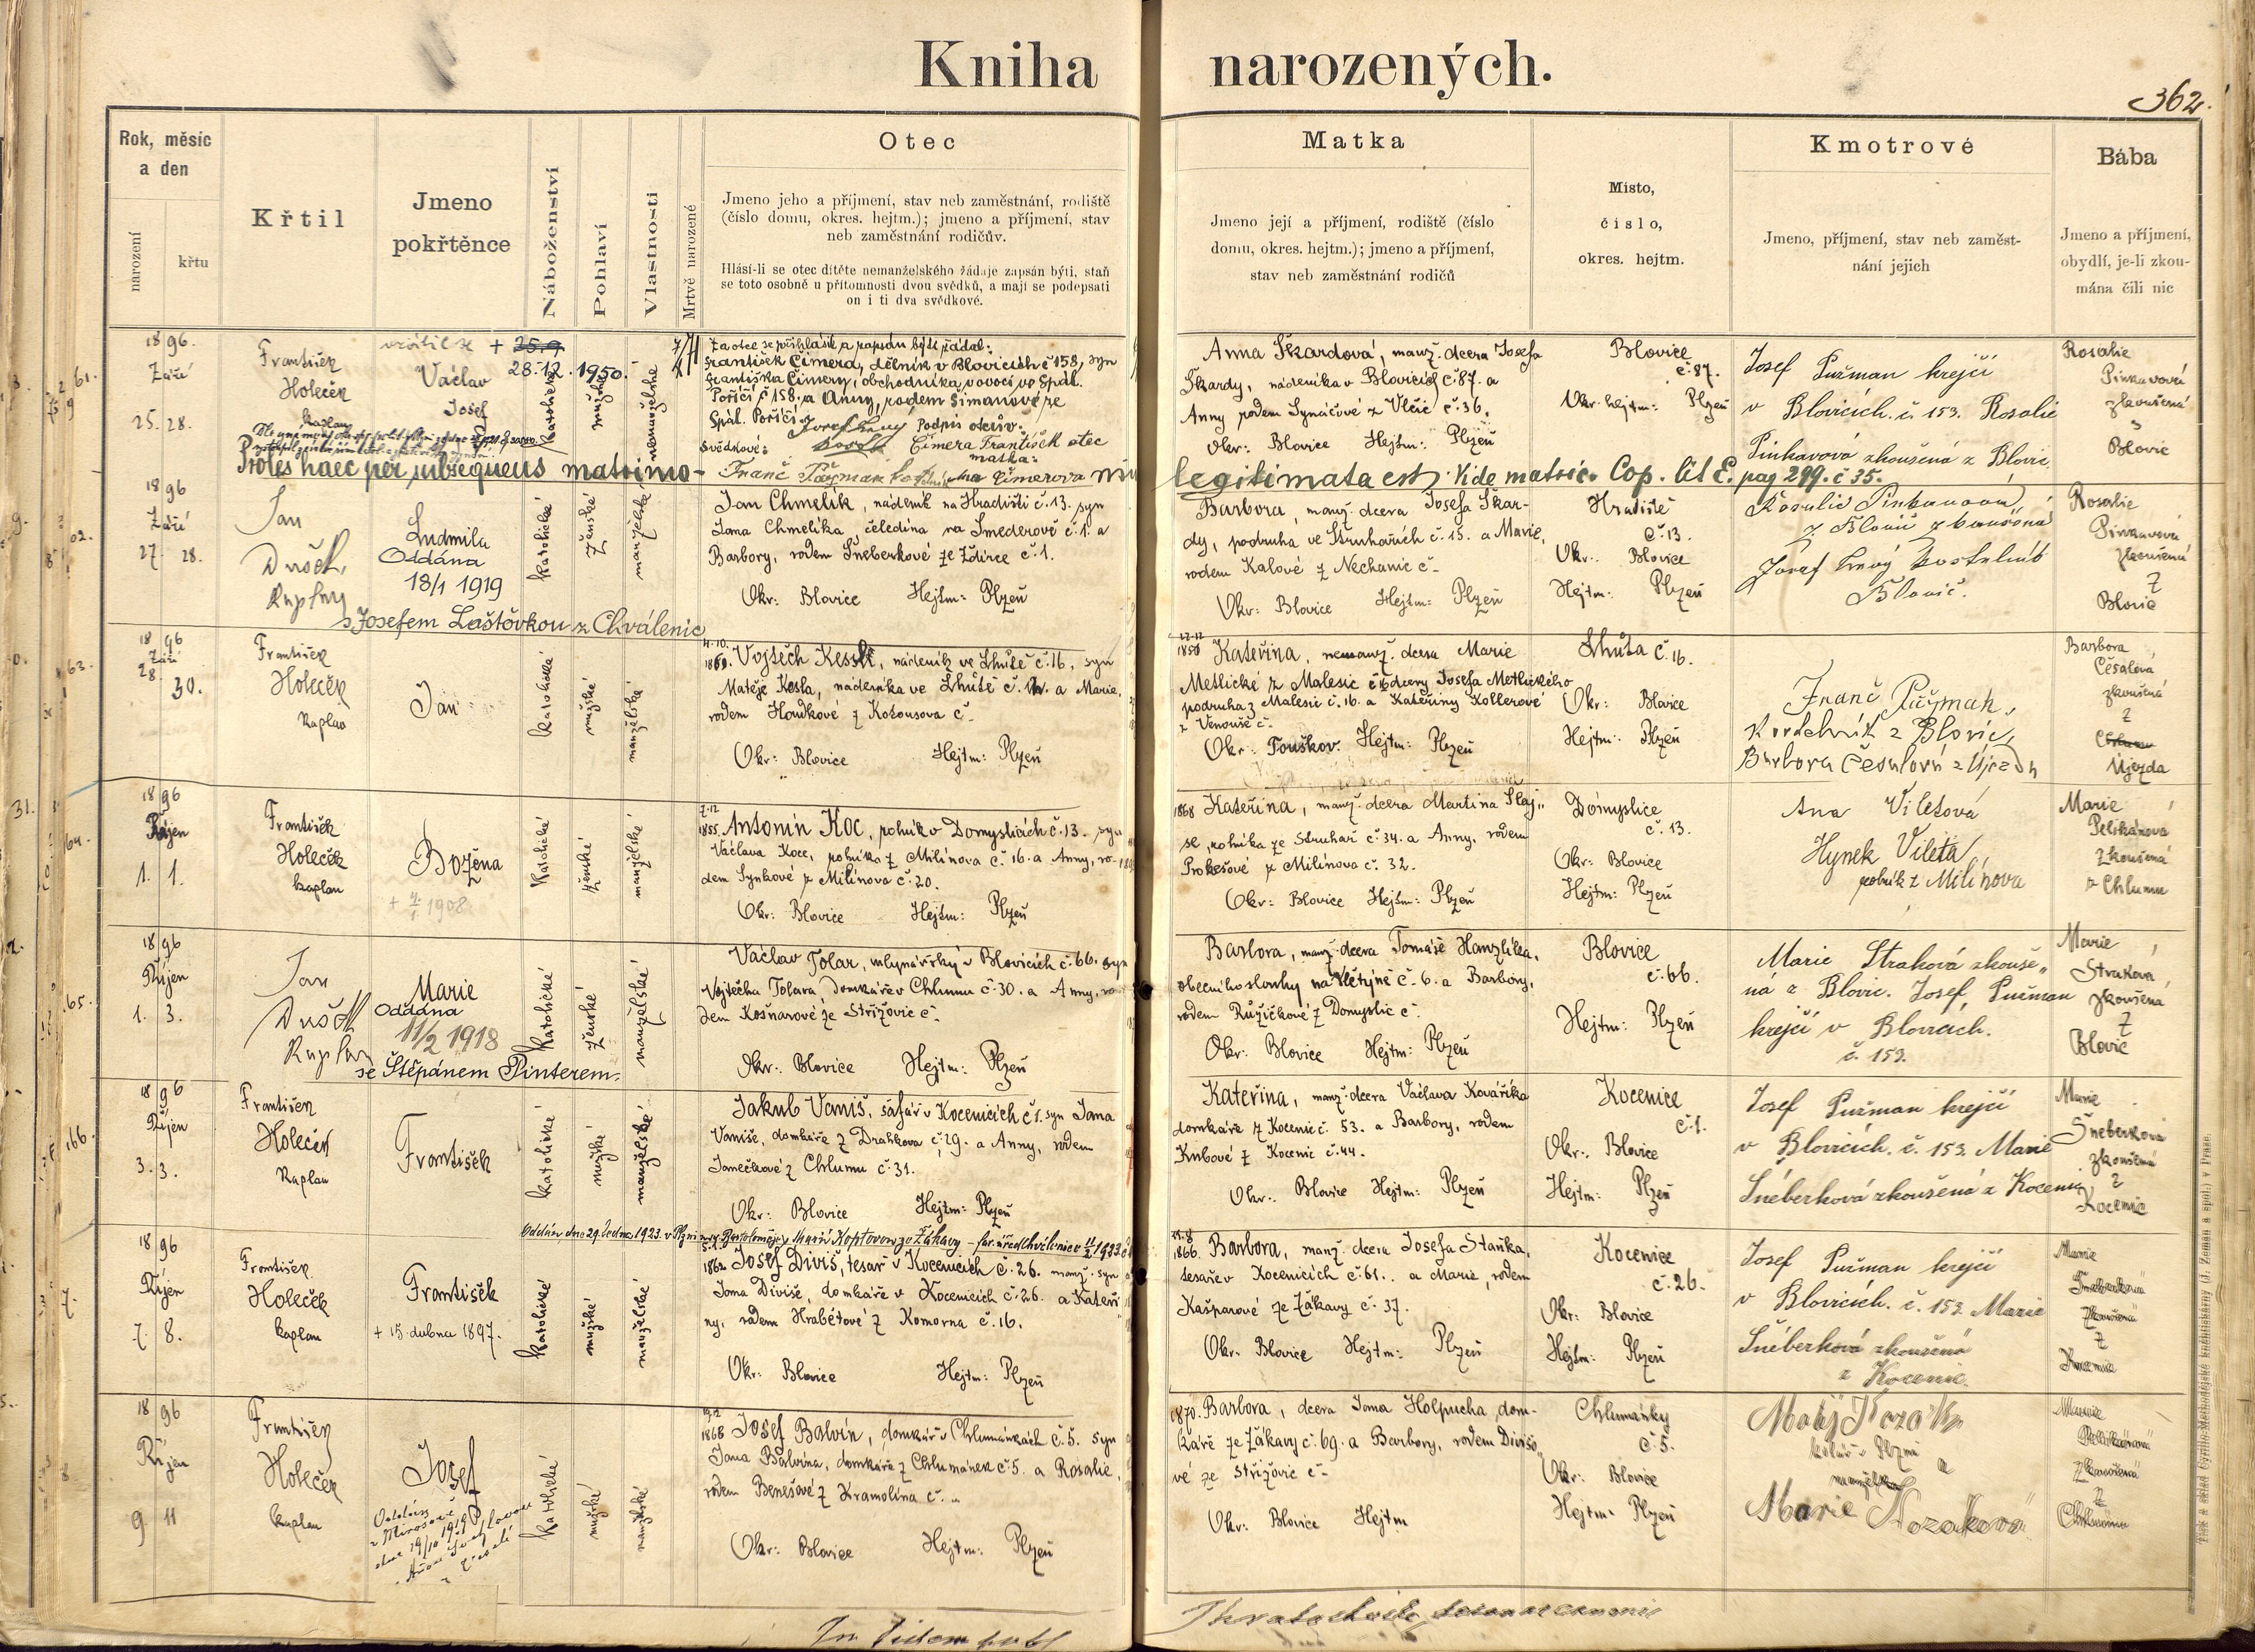 Kniha narozených.
362.
Rok, měsíc
a den
narození
křtu
Křtil
Jmeno
pokřtěnce
Náboženství
Pohlaví
Vlastnosti
Mrtvě narozené
Otec
Jmeno jeho a příjmení, stav neb zaměstnání, rodiště
(číslo domu, okres. hejtm.); jmeno a příjmení, stav
neb zaměstnání rodičův.
Hlásí-li se otec dítěte nemanželského žádaje zapsán býti, staň
se toto osobně u přítomnosti dvou svědků, a mají se podepsati
on i ti dva svědkové.
Matka
Jmeno její a příjmení, rodiště (číslo
domu, okres. hejtm.); jmeno a příjmení,
stav neb zaměstnání rodičů
Místo,
číslo,
okres. hejtm.
Kmotrové
Jmeno, příjmení, stav neb zaměst-
nání jejich
Bába
Jmeno a příjmení,
obydlí, je-li zkou-
mána čili nic
1896.
Září
25. 28.
František
Holeček
kaplan
+ 25.9
28.12.1950.
Václav
Josef
katolické
mužské
nemanželské
Za otce se přihlásil a zapsán býti žádal:
František Čimera, dělník v Blovicích č 158, syn
Františka Čimery, obchodníka v ovoci ve Spál.
Poříčí č 158. a Anny, rodem Šimanové ze
Spál. Poříčí
Podpis otcův:
Svědkové:
Čimera František otec
matka:
Čimerova
Anna Škardová, manž. dcera Josefa
Škardy, nádeníka v Blovicích č.87. a
Anny rodem Synáčové z Vlčic č.36.
Okr: Blovice Hejtm: Plzeň
Blovice
č.87.
Okr. hejtm: Plzeň
Josef Pužman krejčí
v Blovicích. č. 153. Rosalie
Pinkavová zkoušená z Blovic.
Rosalie
Pinkavová
zkoušená
z
Blovic
Proles haec per subsequens matrimo-
legitimata est. Vide matric. Cop. lit E. pag 299. č 35.
1896
Září
27. 28.
Jan
Dušek,
Kaplan
Ludmila
Oddána
18/1 1919
s Josefem Laštovkou z Chválenic
katolické
ženské
manželské
Jan Chmelík, nádeník na Hradišti č.13. syn
Jana Chmelíka, čeledína na Smederově č.1. a
Barbory, rodem Šneberkové ze Ždírce č.1.
Okr: Blovice Hejtm: Plzeň
Barbora, manž. dcera Josefa Škar-
dy, podruha ve Struhařích č.15. a Marie,
rodem Kalové z Nechanic č-
Okr: Blovice Hejtm: Plzeň
Hradiště
č.13.
Okr: Blovice
Hejtm: Plzeň
Rosalie Pinkavová
z Blovic zkoušená
Josef kostelník
Blovic.
Rosalie
Pinkavová
zkoušená
z
Blovic
63.
1896
Září
28. 30.
František
Holeček
kaplan
Jan
katolické
mužské
manželské
4.10.
1869. Vojtěch Kessl, nádeník ve Lhůtě č.16, syn
Matěje Kesla, nádeníka ve Lhůtě č. a Marie,
rodem Houdkové z Kožousova č-
Okr: Blovice Hejtm: Plzeň
Kateřina, nemanž. dcera Marie
Metlické z Malesic dcery Josefa Metlického
podruha z Malesic č.16. a Kateřiny Kollerové
z Vénouše č-
Okr: Touškov. Hejtm: Plzeň
Lhůta č.16.
Okr: Blovice
Hejtm: Plzeň
Barbora Česalová z Újezda
Barbora
Česalová
zkoušená
z
Újezda
64.
1896
Říjen
1. 1.
František
Holeček
kaplan
Božena
1908
katolické
ženské
manželské
7.12
1855. Antonín Koc, rolník v Domyslicích č.13. syn
Václava Koce, rolníka z Milínova č.16. a Anny, ro-
dem Synkové z Milínova č.20.
Okr: Blovice Hejtm: Plzeň
1868 Kateřina, manž. dcera Martina Šlaj-
se, rolníka ze Struhař č.34. a Anny, rodem
Prokešové z Milínova č. 32.
Okr: Blovice Hejtm: Plzeň
Domyslice
č.13.
Okr: Blovice
Hejtm: Plzeň
Ana Viletová
Hynek Vileta,
rolník z Milínova
Marie
Pelikánová
zkoušená
z Chlumu
65.
1896
Říjen
1. 3.
Jan
Dušek
Kaplan
Marie
Oddána
11/2 1918
se Štěpánem Pinterem.
katolické
ženské
manželské
Václav Tolar, mlynářský v Blovicích č.66. syn
Vojtěcha Tolara domkáře v Chlumu č.30. a Anny, ro-
dem Košnarové ze Střížovic č-
Okr: Blovice Hejtm: Plzeň
Barbora, manž. dcera Tomáše Hanzlíka,
obecního sluhy na Vlčtýně č.6. a Barbory,
rodem Růžičkové z Domyslic č-
Okr: Blovice Hejtm: Plzeň
Blovice
č.66.
Hejtm: Plzeň
Marie Straková zkouše-
ná z Blovic. Josef Pužman
krejčí v Blovicích.
č. 153.
Marie
Straková
zkoušená
z
Blovic
166.
1896
Říjen
3. 3.
František
Holeček
Kaplan
František
katolické
mužské
manželské
Jakub Vaniš, šafář v Kocenicích č 1. syn Jana
Vaniše, domkáře z Drahkova č.29. a Anny, rodem
Janečkové z Chlumu č.31.
Okr: Blovice Hejtm: Plzeň
Kateřina, manž. dcera Václava Kováříka
domkáře z Kocenic č. 53. a Barbory, rodem
z Kocenic č.44.
Okr: Blovice Hejtm: Plzeň
Kocenice
č.1.
Okr: Blovice
Hejtm: Plzeň
Josef Pužman krejčí
v Blovicích. č. 153. Marie
Šnéberková zkoušená z Kocenic
Marie
Šneberková
zkoušená
z
Kocenic
1896
Říjen
7. 8.
František
Holeček
kaplan
František
+ 15. dubna 1897.
katolické
mužské
manželské
1862. Josef Diviš, tesař v Kocenicích č.26. manž. syn
Jana Diviše, domkáře v Kocenicích č.26. a Kateři
ny, rodem Hrabětové z Komorna č.16.
Okr: Blovice Hejtm: Plzeň
1866. Barbora, manž. dcera Josefa Staňka,
tesaře v Kocenicích č.61. a Marie, rodem
Kašparové ze Žákavy č. 37.
Okr: Blovice Hejtm: Plzeň
Kocenice
č.26.
Okr: Blovice
Hejtm: Plzeň
Josef Pužman krejčí
v Blovicích. č. 153. Marie
Šnéberková zkoušená
z Kocenic.
Marie
Šneberková
zkoušená
z
Kocenic
1896
Říjen
9. 11
František
Holeček
kaplan
Josef
katolické
mužské
manželské
1868 Josef Balvín, domkář v Chlumánkách č.5. syn
Jana Balvína, domkáře z Chlumánek č.5. a Rosalie,
rodem Benešové z Kramolína č. -
Okr: Blovice Hejtm: Plzeň
1870. Barbora, dcera Jana Holpucha, dom-
káře ze Žákavy č.69. a Barbory, rodem Divišo-
vé ze Střížovic č-
Okr: Blovice Hejtm
Chlumánky
č.5.
Okr: Blovice
Hejtm: Plzeň
Matěj Kozák
kolář v Plzni a
manželka
Marie Kozáková
Marie
Pelikánová
zkoušená
z
Chlumu
Tisk a sklad Cyrillo-Methodějské knihtiskárny (J. Zeman a spol.) v Praze.